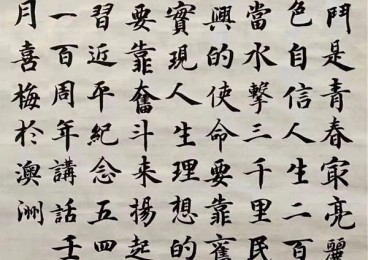 鬥是青春冣亮麗
色自信人生二百
當水擊三千里民
興的使命要靠奮
實現人生理想的
要靠奮斗来揚起
習近平紀念五四
一百周年講話壬
月喜梅於澳洲